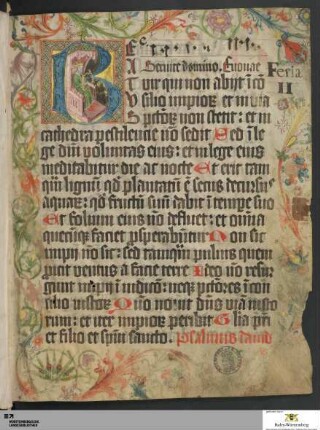 Servite domino. Euouae
Feria
II
B EATus
vir qui non abijt in co
silio impiorum et in via
peccatorum non stetit: et in
cathedra pestilentie non sedit Sed in le
ge domini voluntas eius: et in lege eius
meditabitur die ac nocte Et erit tam
quam lignum quod plantatum est secus decursus
aquarum: quod fructum suum dabit in tempore suo
Et folium eius non defluet: et omnia
quecumque faciet prosperabuntur Non sic
impii non sic: sed tamquam pulvis quem
proicit ventus a facie terre Ideo non resur
gunt impii in iudicio: neque peccatores in con
silio iustorum Quoniam novit dominus viam iusto
rum: et iter impiorum peribit Gloria patri
et filio et spiritui sancto. Psalmus david